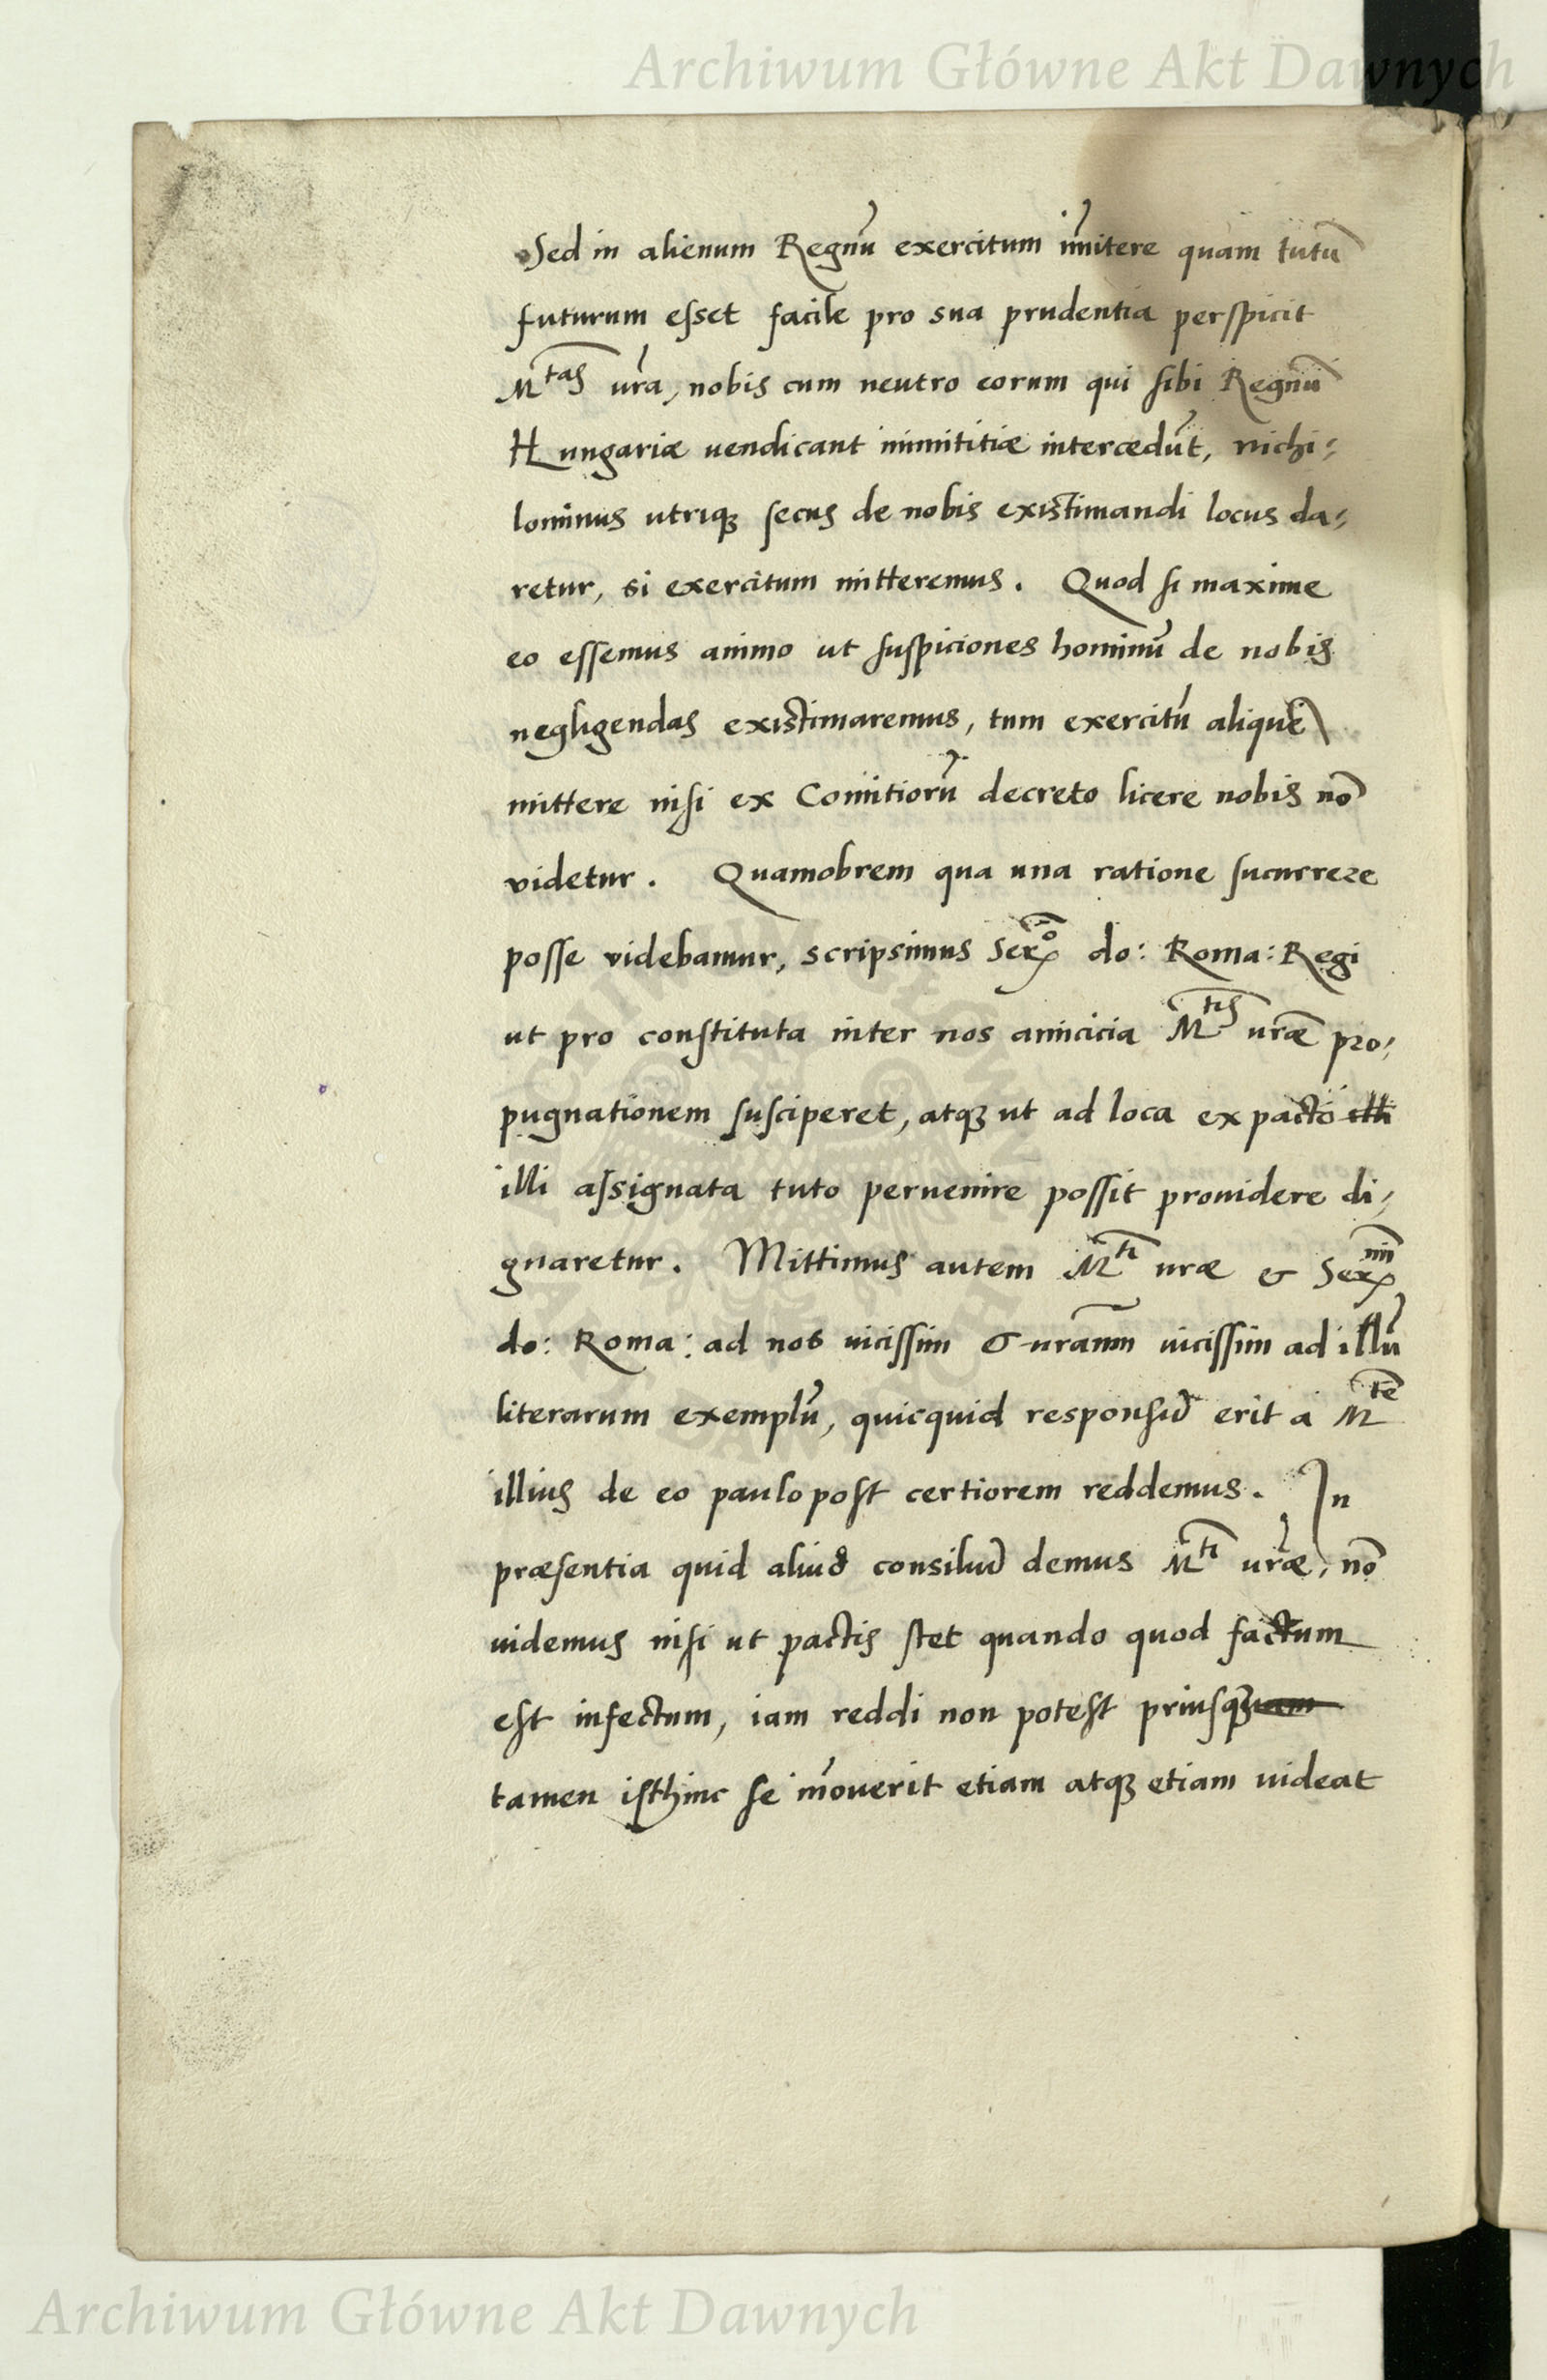 Archiwum Główne Akt Dawnych
Sed in alienum Regnū exercitum īmitere quam tutū
futurum esset facile pro sua prudentia perspicit
Mtas vra, nobis cum neutro eorum qui sibi Regnū
Hungariæ uendicant inimititiæ intercedūt, nichi-
lominus utriqꝫ secus de nobis existimandi locus da-
retur, si exercitum mitteremus. Quod si maxime
eo essemus animo ut suspiciones hominū de nobis
negligendas existimaremus, tum exercitū aliquē
mittere nisi ex Comitiorū decreto licere nobis nō
videtur. Quamobrem qua una ratione sucurrere
posse videbamur, scripsimus Serᵒ do: Roma: Regi
ut pro constituta inter nos amicicia Mtis uræ pro-
pugnationem susciperet, atqꝫ ut ad loca ex pacto illi
illi assignata tuto peruenire possit prouidere di-
gnaretur. Mittimus autem Mti uræ & Ser
do: Roma: ad nos uicissim & uram uicissim ad illū
literarum exemplū, quicquid responsū erit a Mte
illius de eo paulo post certiorem reddemus. In
præsentia quid aliud consiliū demus Mti uræ, nō
uidemus nisi ut pactis stet quando quod factum
est infectum, iam reddi non potest priusqꝫuam
tamen isthinc se īmouerit etiam atqꝫ etiam uideat
Archiwum Główne Akt Dawnych